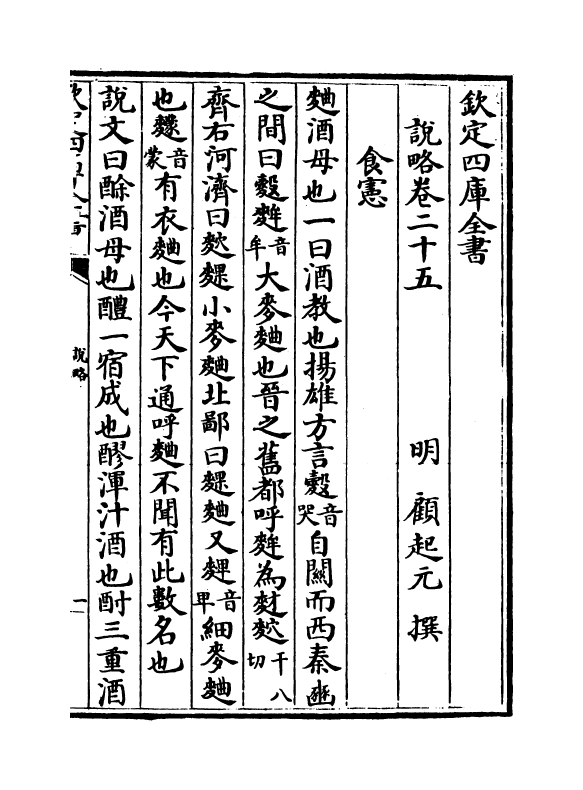 欽定四庫全書
說略卷二十五
明 顧起元 撰
食憲
麯酒母也一曰酒教也揚雄方言䴷音哭自關而西秦豳
之間曰䴷䴾音牟大麥麯也晉之舊都呼䴾為麰音干八切
齊右河濟曰䴷䴹小麥麯北鄙曰䴹麯又䴽音卑細麥麯
也䴿音蒙有衣麯也今天下通呼麯不聞有此數名也
說文曰酴酒母也醴一宿成也醪渾汁酒也酎三重酒
說略
一